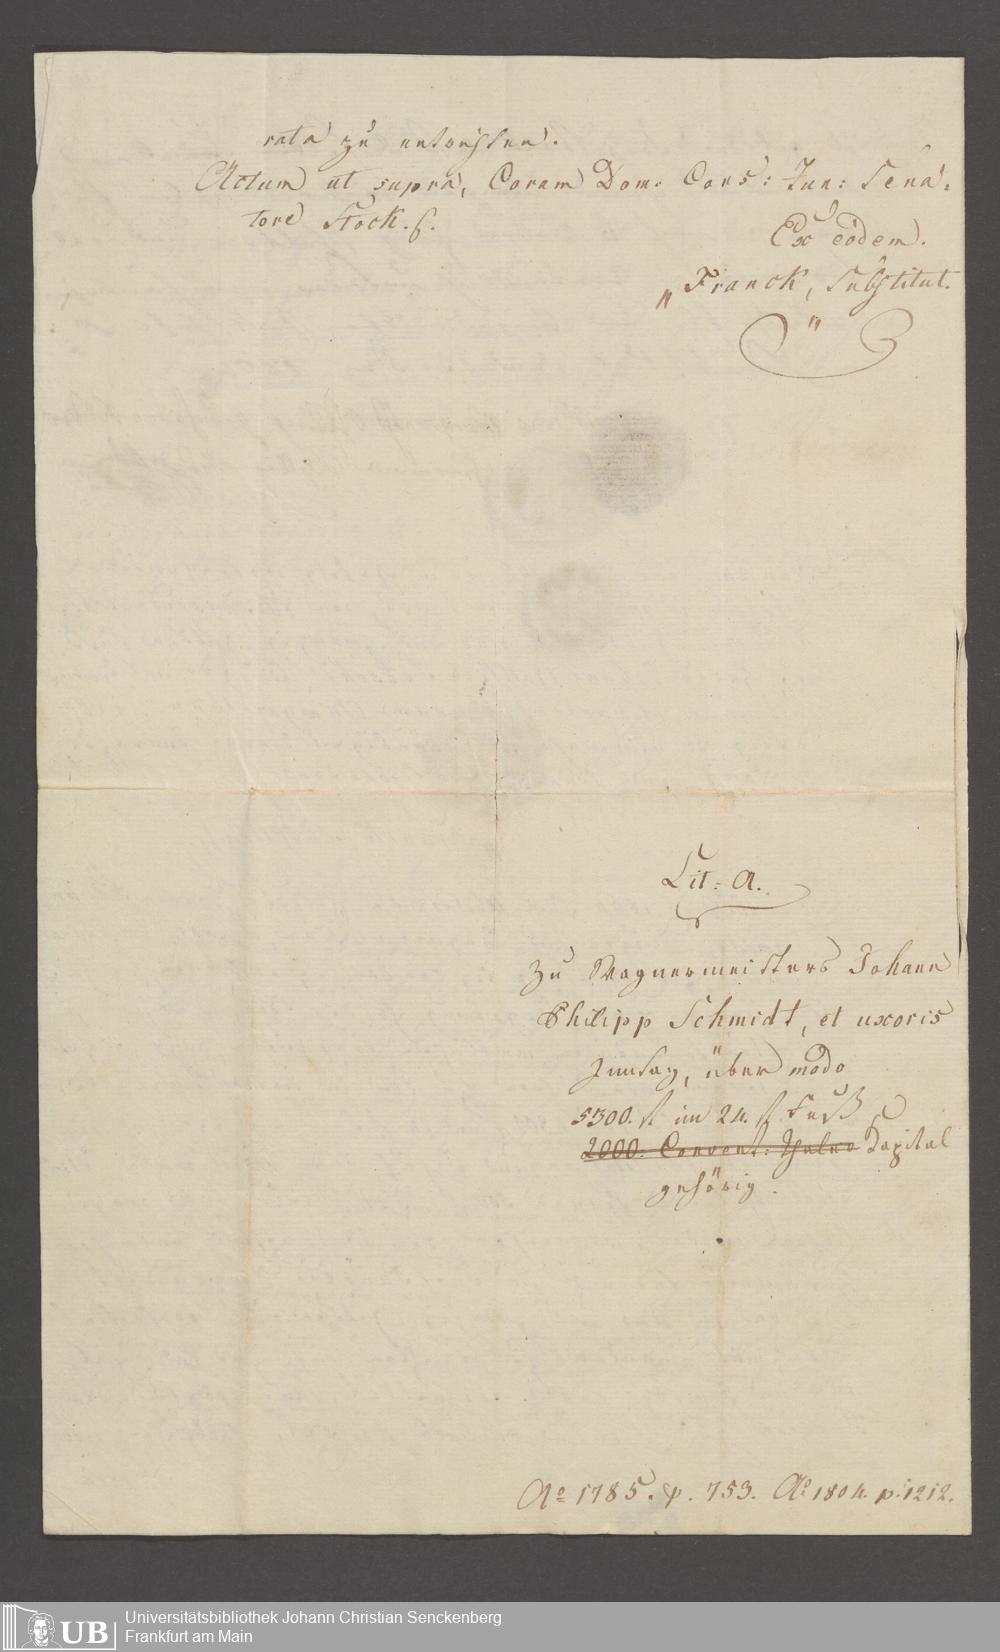 rata zu entrichten.
Actum ut supra, Coram Dom. Cons: Jun: Sena,
tore Stock. S.
Ex eodem.
„ Franck, Substitut.
"
Lit: A.
zu Wagnermeisters Johann
Philipp Schmidt, et uxoris
Innsaz, über modo
5300. fl im 24. fl Fuß
2000. Convent: Thaler Capital
gehörig.
Ao 1785. p. 753. Ao 1804. p. 1212.
UB
Universitätsbibliothek Johann Christian Senckenberg
Frankfurt am Main